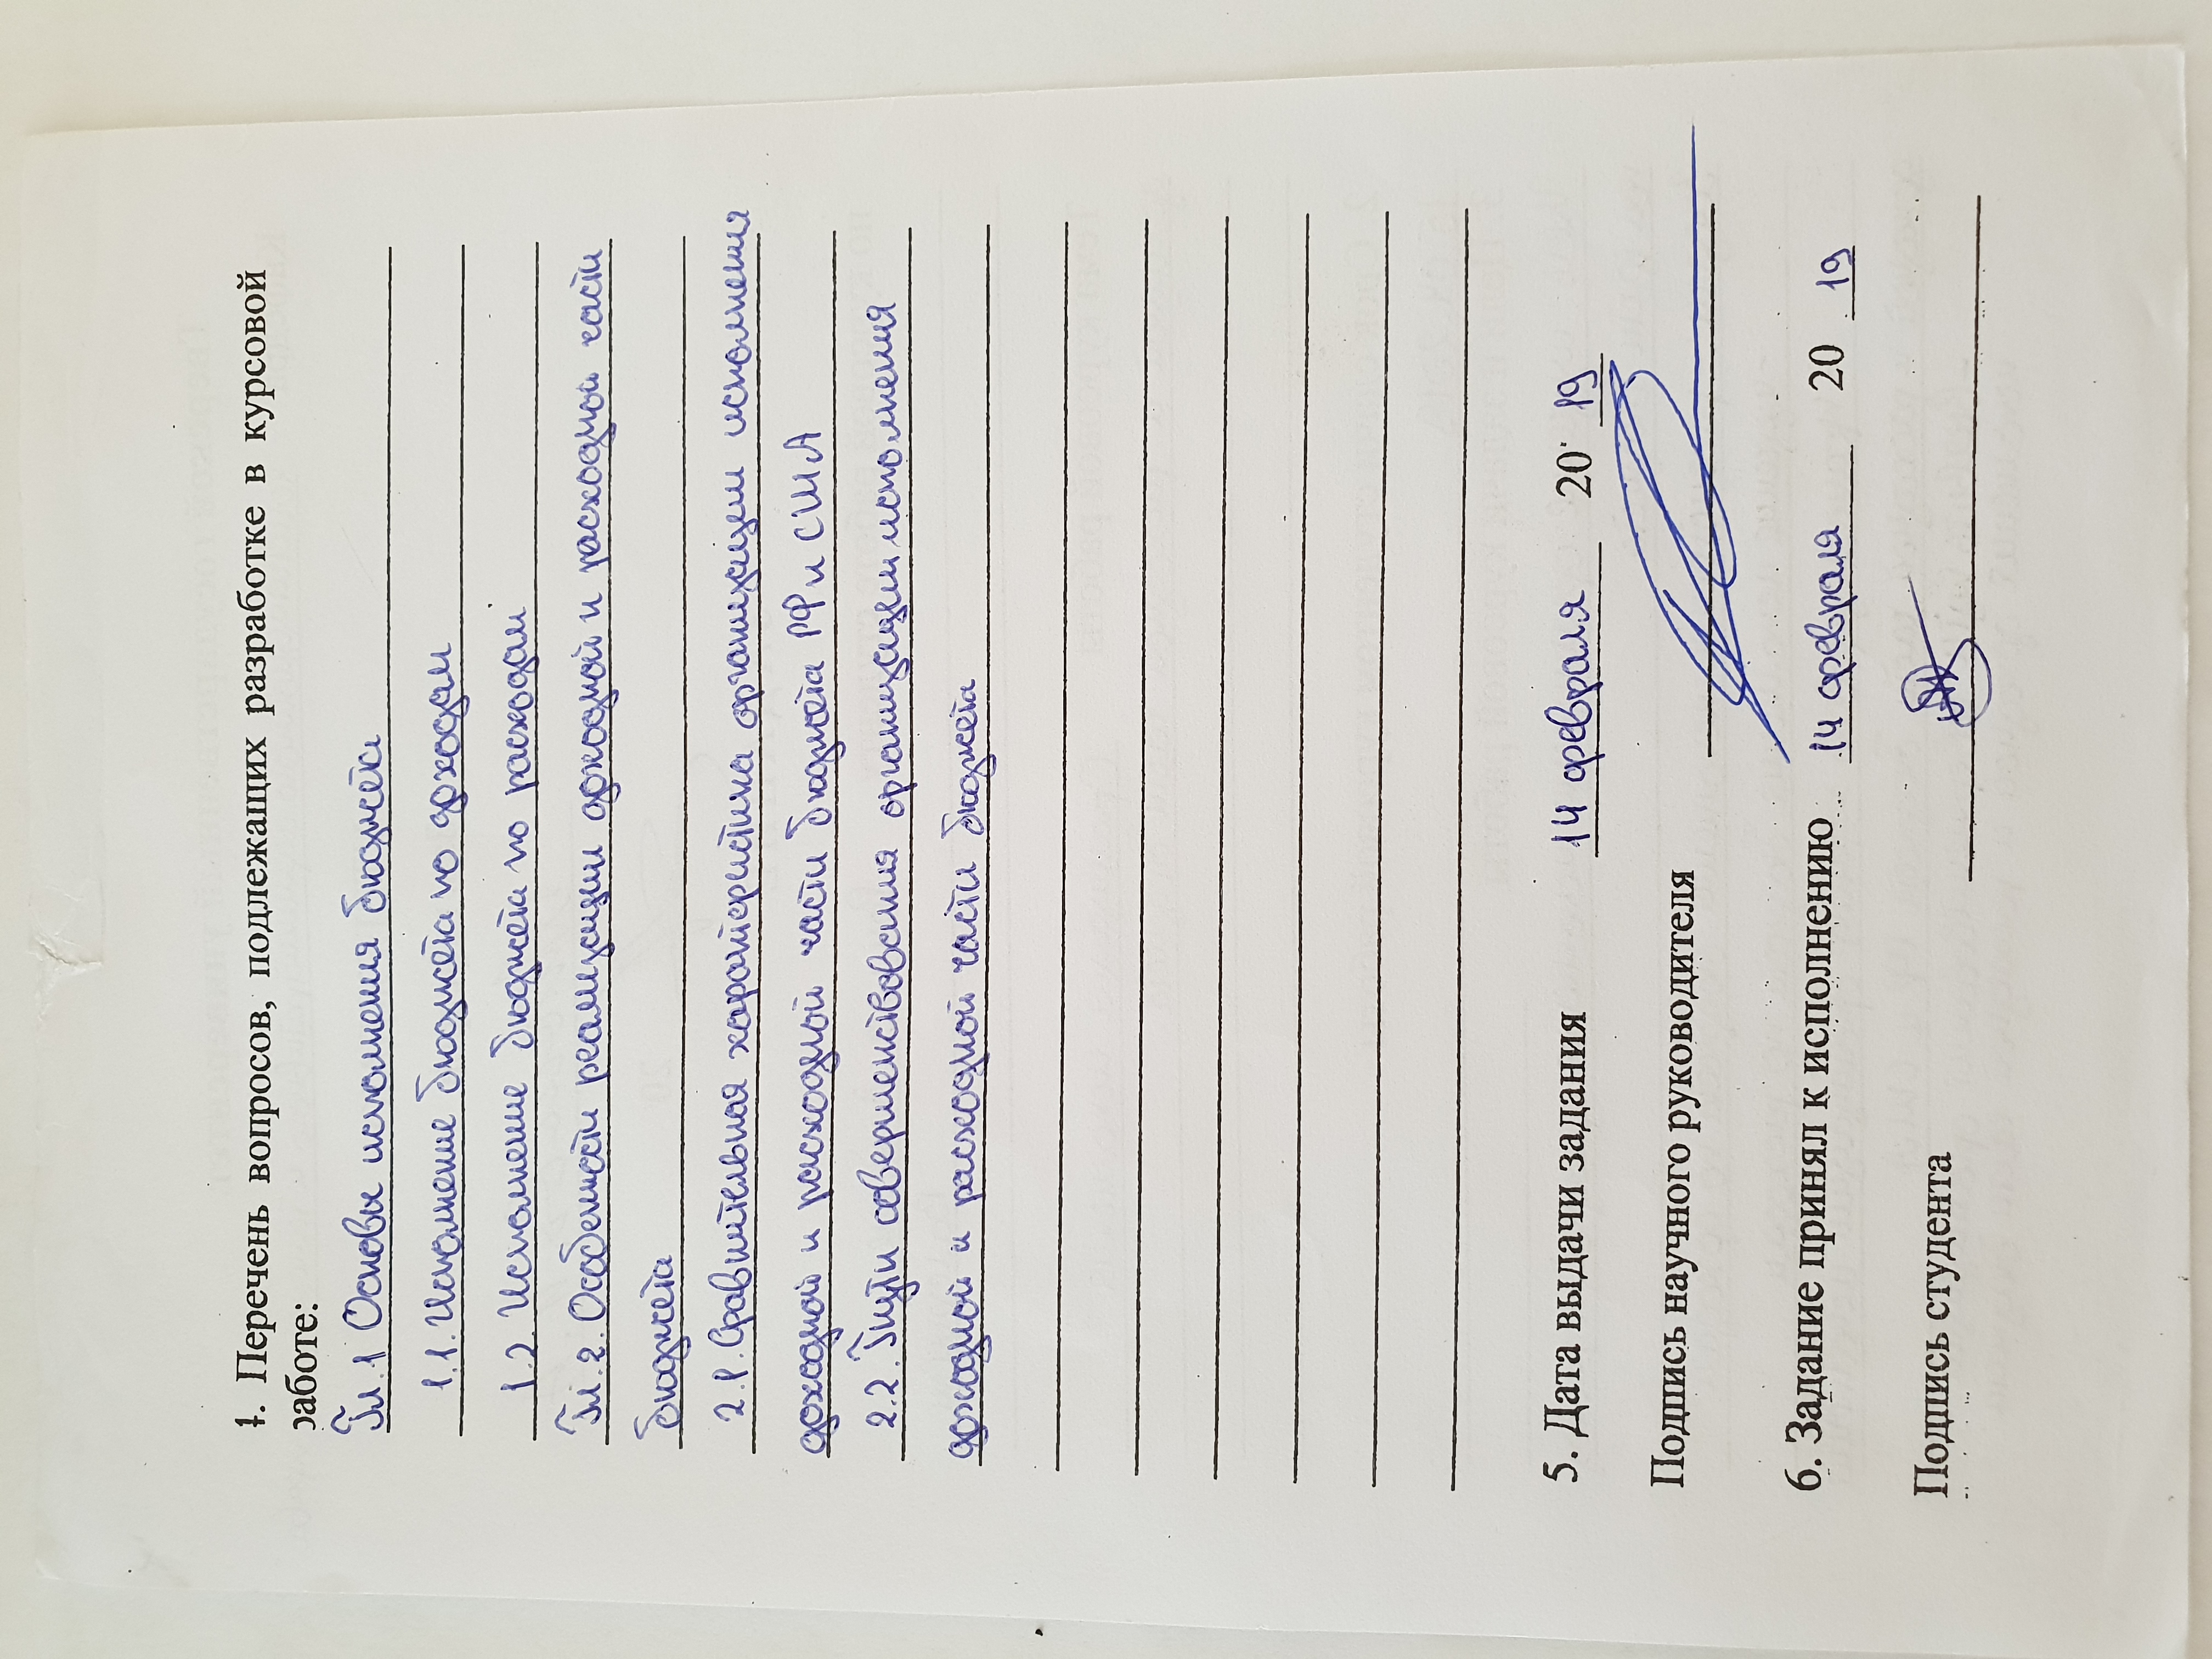 4. Перечень вопросов, подлежащих разработке в курсовой
работе:
Гл. 1 Основы исполнения бюджета
1.1. Исполнение бюджета по доходам
1.2. Исполнение бюджета по расходам
Гл. 2. Особенности реализации доходной и расходной части
бюджета
2.1. Сравнительная характеристика организации исполнения
доходной и расходной части бюджета РФ и США
2.2. Пути совершенствования организации исполнения
доходной и расходной части бюджета
5. Дата выдачи задания 14 февраля 20 19
Подпись научного руководителя
6. Задание принял к исполнению 14 февраля 20 19
Подпись студента